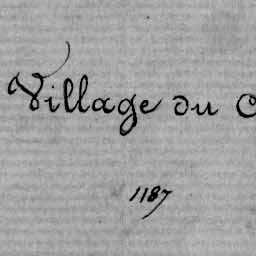 Village du
1187